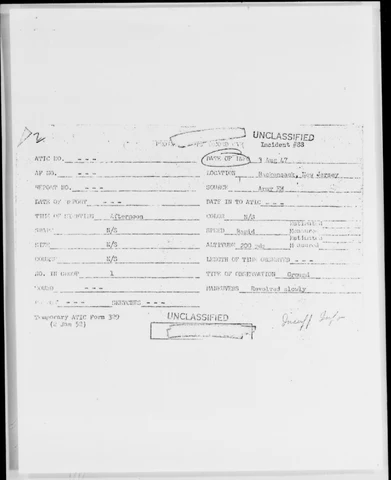 2
UNCLASSIFIED
Incident #88
ATIC NO. - - -
DATE OF 3 Aug 47
AF NO. - - -
LOCATION Hackensack, New Jersey
REPORT NO. - - -
SOURCE Army
DATE OF REPORT - - -
DATE IN TO ATIC - - -
TIME OF SIGHTING Afternoon
COLOR N/S
SHAPE N/S
SPEED Rapid
SIZE N/S
ALTITUDE 200 yds
COURSE N/S
LENGTH OF TIME OBSERVED - - -
NO. IN GROUP 1
TYPE OF OBSERVATION Ground
SOUND - - -
MANEUVERS slowly
- - - SKETCHES - - -
Temporary ATIC Form 329
(2 Jan 52)
UNCLASSIFIED
Insuff Info